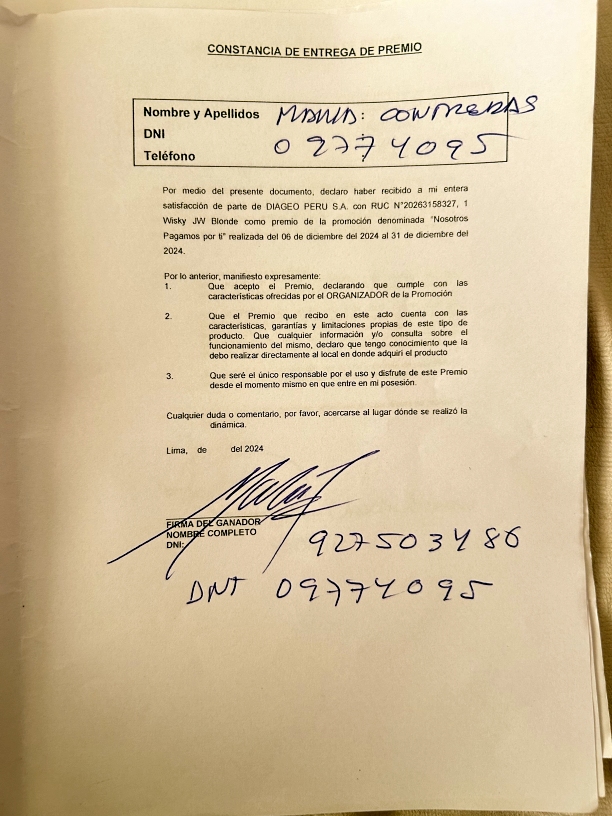 CONSTANCIA DE ENTREGA DE PREMIO
Nombre y Apellidos MARIA: CONTRERAS
DNI 09774095
Teléfono
Por medio del presente documento, declaro haber recibido a mi entera
satisfacción de parte de DIAGEO PERU S.A. con RUC N°20263158327, 1
Wisky JW Blonde como premio de la promoción denominada "Nosotros
Pagamos por ti" realizada del 06 de diciembre del 2024 al 31 de diciembre del
2024.
Por lo anterior, manifiesto expresamente:
1. Que acepto el Premio, declarando que cumple con las
características ofrecidas por el ORGANIZADOR de la Promoción
2. Que el Premio que recibo en este acto cuenta con las
características, garantías y limitaciones propias de este tipo de
producto. Que cualquier información y/o consulta sobre el
funcionamiento del mismo, declaro que tengo conocimiento que la
debo realizar directamente al local en donde adquirí el producto
3. Que seré el único responsable por el uso y disfrute de este Premio
desde el momento mismo en que entre en mi posesión.
Cualquier duda o comentario, por favor, acercarse al lugar dónde se realizó la
dinámica.
Lima, de del 2024
FIRMA DEL GANADOR
NOMBRE COMPLETO
DNI:
927503486
DNI 09774095